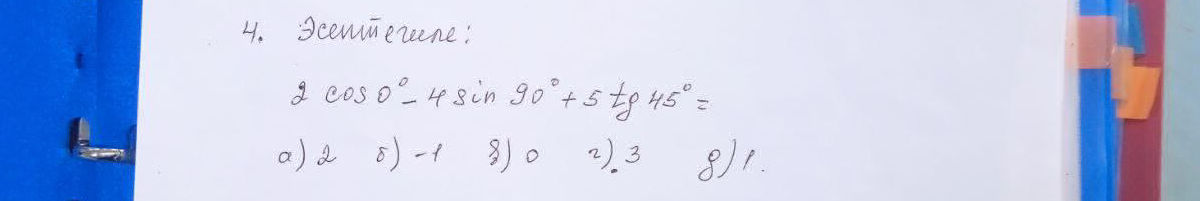 4. Эсептегиле:
2 cos 0° - 4 sin 90° + 5 tg 45° =
а) 2 б) -1 в) 0 г). 3 д) 1.